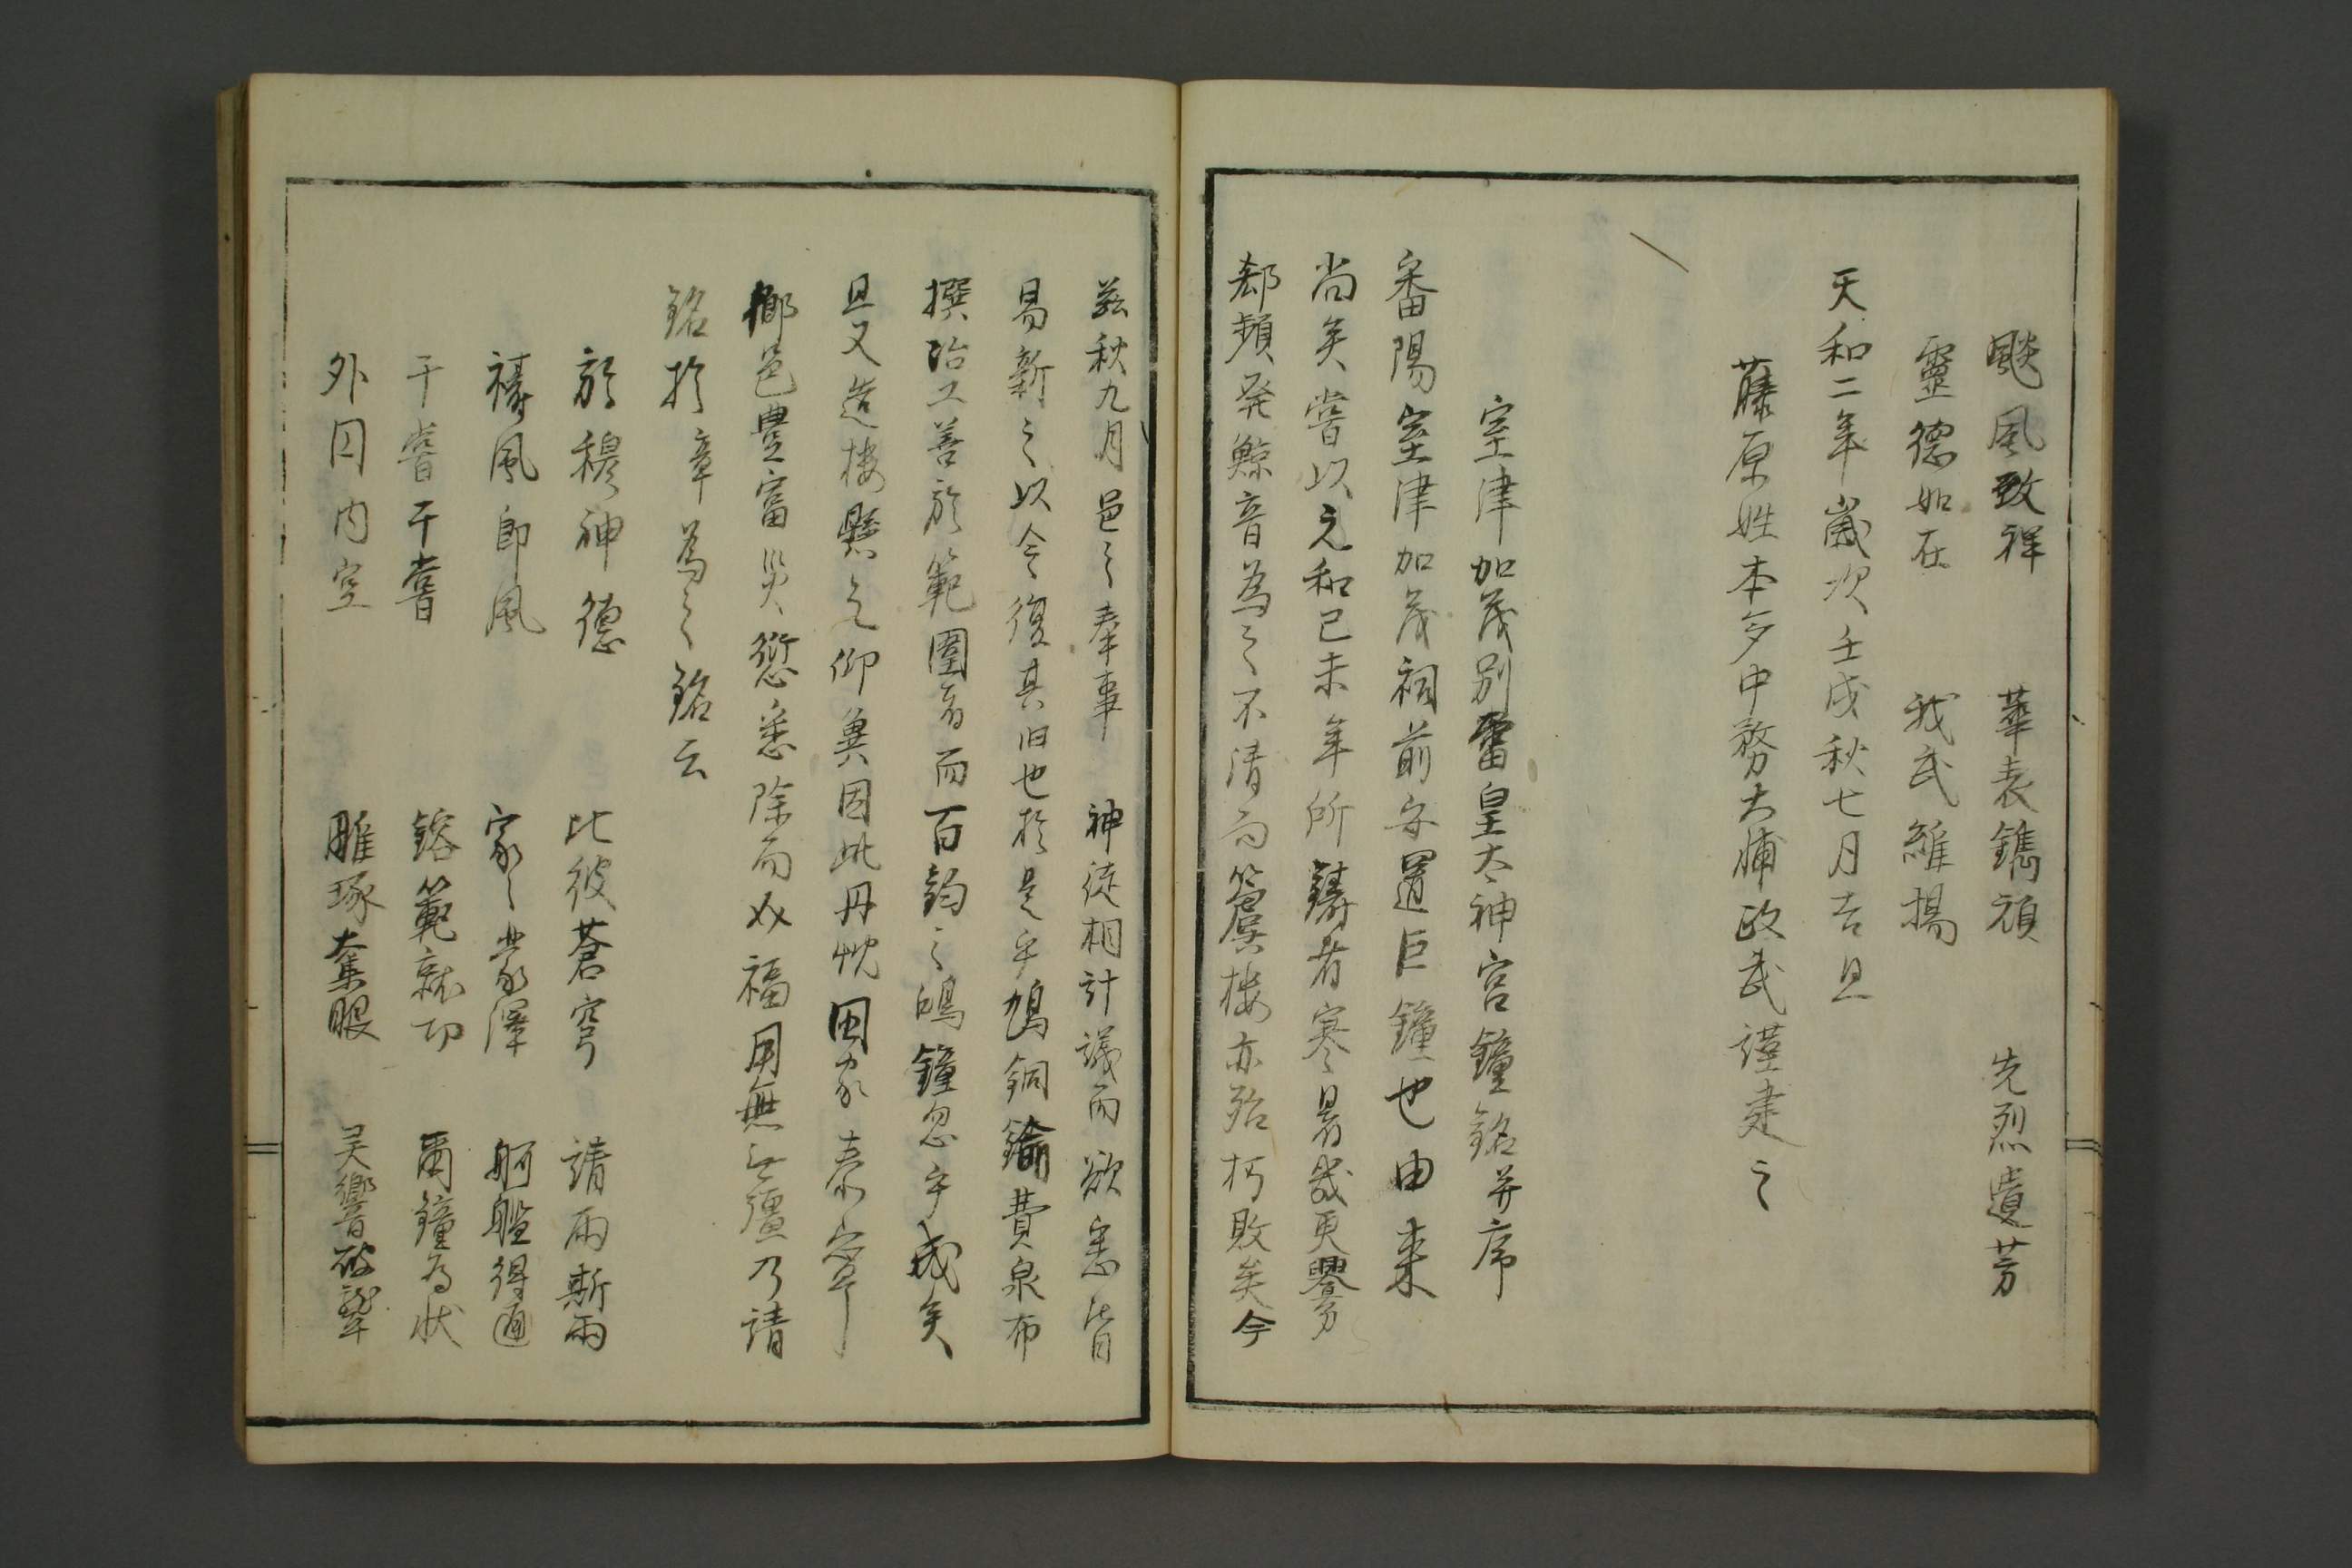 颷風致祥　華表鐫頑　先烈遺芳
靈德如在　我武維揚
天和二年歲次壬戌秋七月吉旦
藤原姓本多中務大輔政武謹建之
室津加茂別雷皇太神宮鐘銘并序
番陽室津加茂祠前安置巨鐘也由来
尚矣嘗以元和己未年所鑄者寒暑幾更釁
郄頻発鯨音為之不清而簨簴楼亦殆朽敗矣今
茲秋九月邑之奉事　神徒相計議而欲悉皆
易新之以令復其旧也於是乎鳩銅鍮費泉布
撰冶工善於範圍者而百鈞之鴻鐘忽乎成矣
且又造楼懸之仰冀因此丹忱国家泰寧
郷邑豊富災愆悉除而双福用無彊乃請
銘於章為之銘云
於穆神德　比彼蒼穹　請雨斯雨
禱風即風　家々蒙澤　舸艦得通
于嘗于嘗　鎔範就功　爾鐘為状
外円内空　雕琢奪眼　吴響破聾